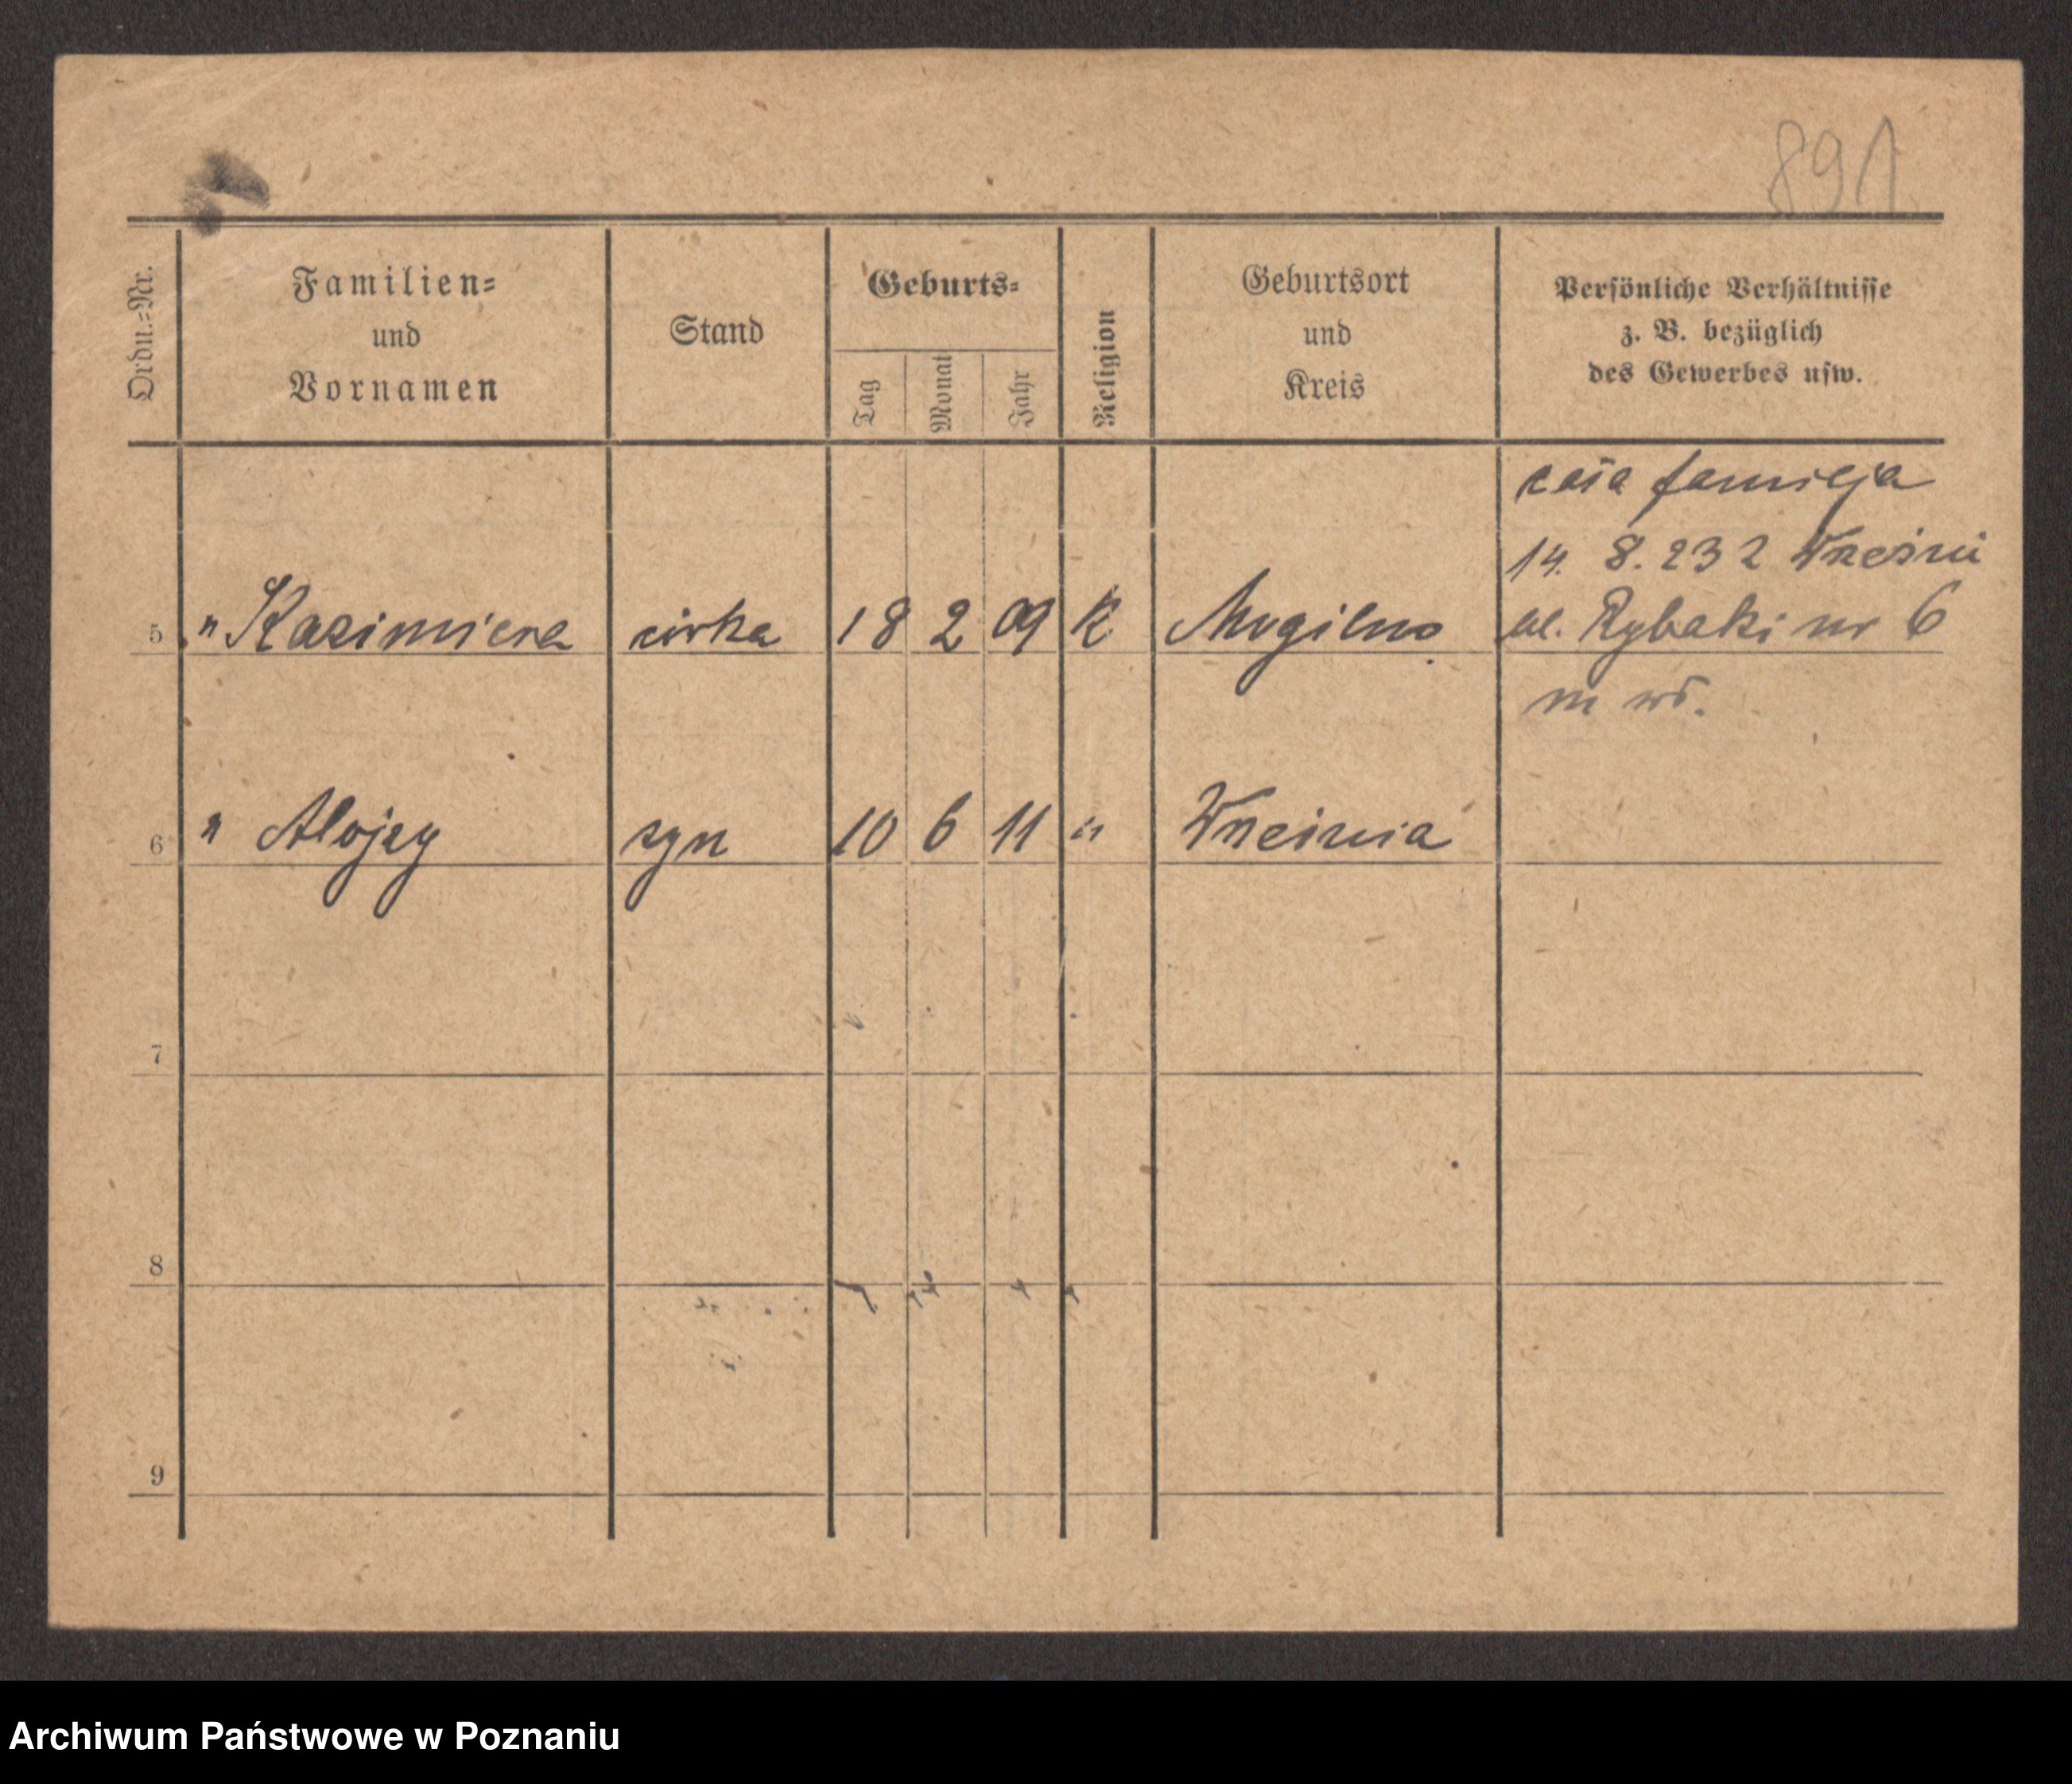 891
Ordn.=Nr.
Familien=
und
Vornamen
Stand
Geburts=
Tag
Monat
Jahr
Religion
Geburtsort
und
Kreis
Persönliche Verhältnisse
z. B. bezüglich
des Gewerbes usw.
cała familja
14. 8. 23 z Wrześni
5 " Kazimiera córka 18 2 09 K Mogilno ul. Rybaki nr 6
6 " Alojzy syn 10 6 11 " Września
7
8
9
Archiwum Państwowe w Poznaniu